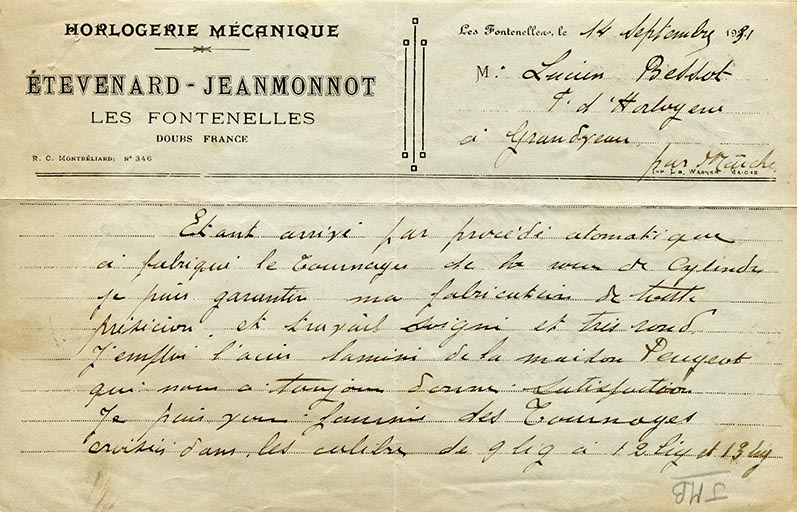 HORLOGERIE MÉCANIQUE
ÉTEVENARD - JEANMONNOT
LES FONTENELLES
DOUBS FRANCE
R. C. MONTBÉLIARD: N° 346
Les Fontenelles, le 14 Septembre 1931
M: Lucien Bessot
F. d'Horlogerie
à Grandfeau
par Maiche
MAICHE
Etant arrivé par procédé atomatique
a fabriqué le Tournages de la roue de Cylindre
je puis garantir ma fabrication de toutte
présicion et travail soigné et tres rond
J'emploi l'acier laminé de la maison Peugeot
qui nous a toujour donné satisfaction
Je puis vous fournir des Tournages
croisés dans les calibre de 9 lig à 12 lig et 13 lig
JMB